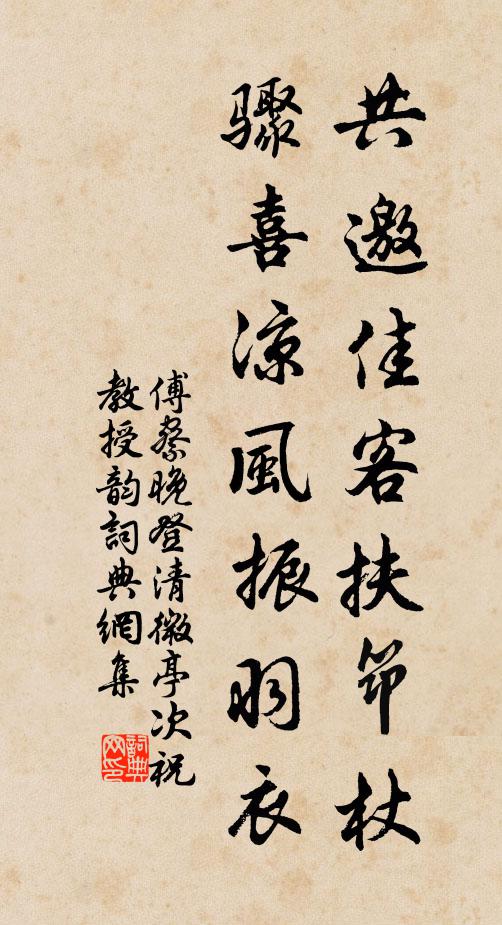 共邀佳客扶笻杖
驟喜凉風振羽衣
傅察晚登清微亭次祝
教授韵詞典網集
詞典
网印